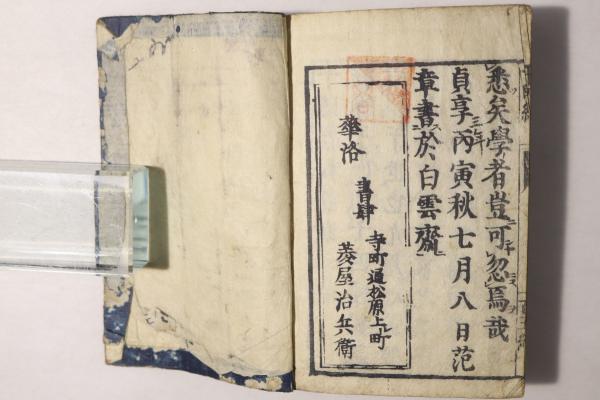 悉矣學者豈可忽焉哉
貞享丙寅三年秋七月八日范
章書於白雲齋
華洛
書肆
寺町通松原上町
菱屋治兵衛